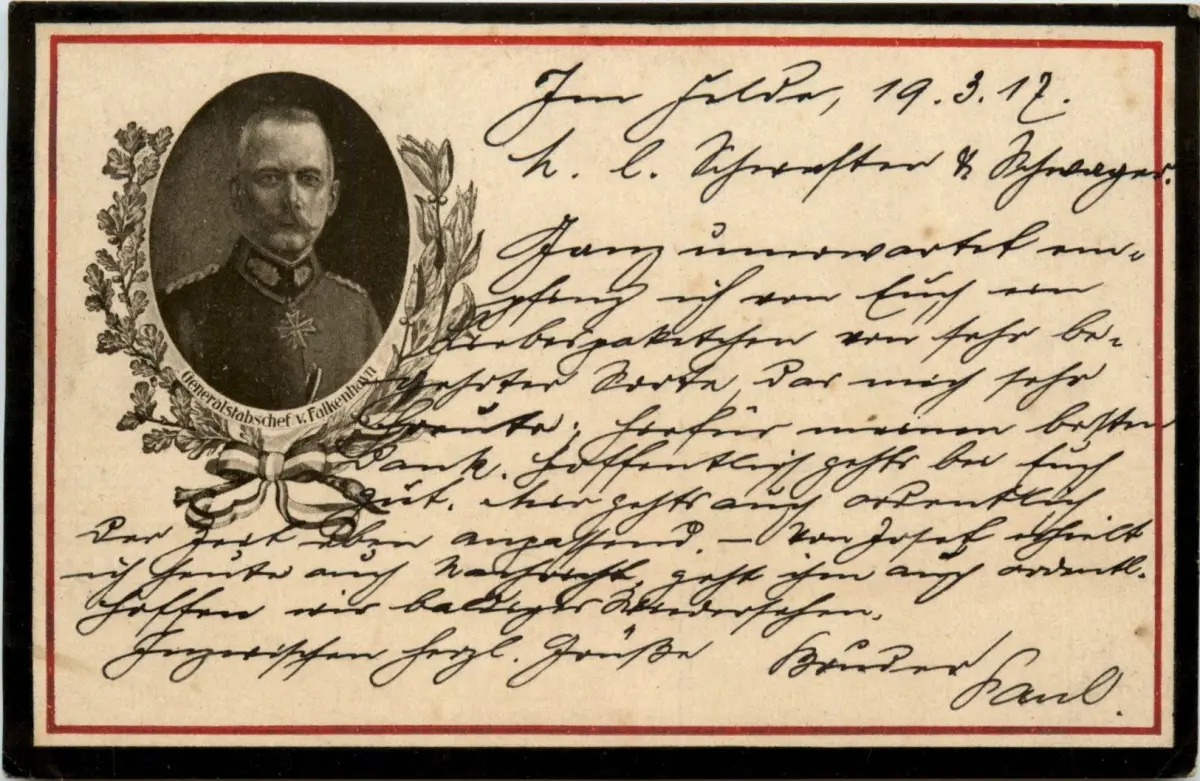 Generalstabschef v. Falkenhayn
Im Felde, 19.3.17.
M. l. Schwester & Schwager.
Ganz unerwartet em-
pfing ich von Euch ein
Liebespaketchen von sehr be-
gehrter Sorte, das mich sehr
freute; hiefür meinen besten
Dank. Hoffentlich gehts bei Euch
gut. Mir gehts auch ordentlich
der Zeit eben anpassend. – Von Josef erhielt
ich heute auch Nachricht, geht ihm auch ordentl.
Hoffen wir baldiges Wiedersehen.
Inzwischen herzl. Grüße Bruder
Paul.